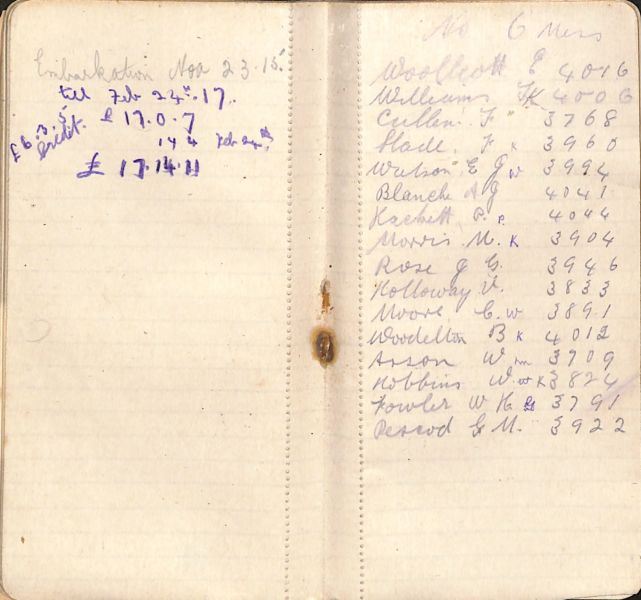 Embarkation Nov 23.15.
till Feb 24th. 17.
£6.3.5 credit.
£ 17.0.7
14 4 Feb 24th
£ 17.14.11
No 6 Mess
Woollcott E 4016
Williams K 4006
Cullen F 3768
Slade F K 3960
Watson E G W 3994
Blanche A G 4041
Hackett P. P. 4044
Morris M. K 3904
Rose J G. 3946
Holloway V. 3833
Moore C. W 3891
Woodelton B K 4012
Asson W m 3709
Hobbins W. W K 3824
Fowler W H G 3791
Pescod G M. 3922